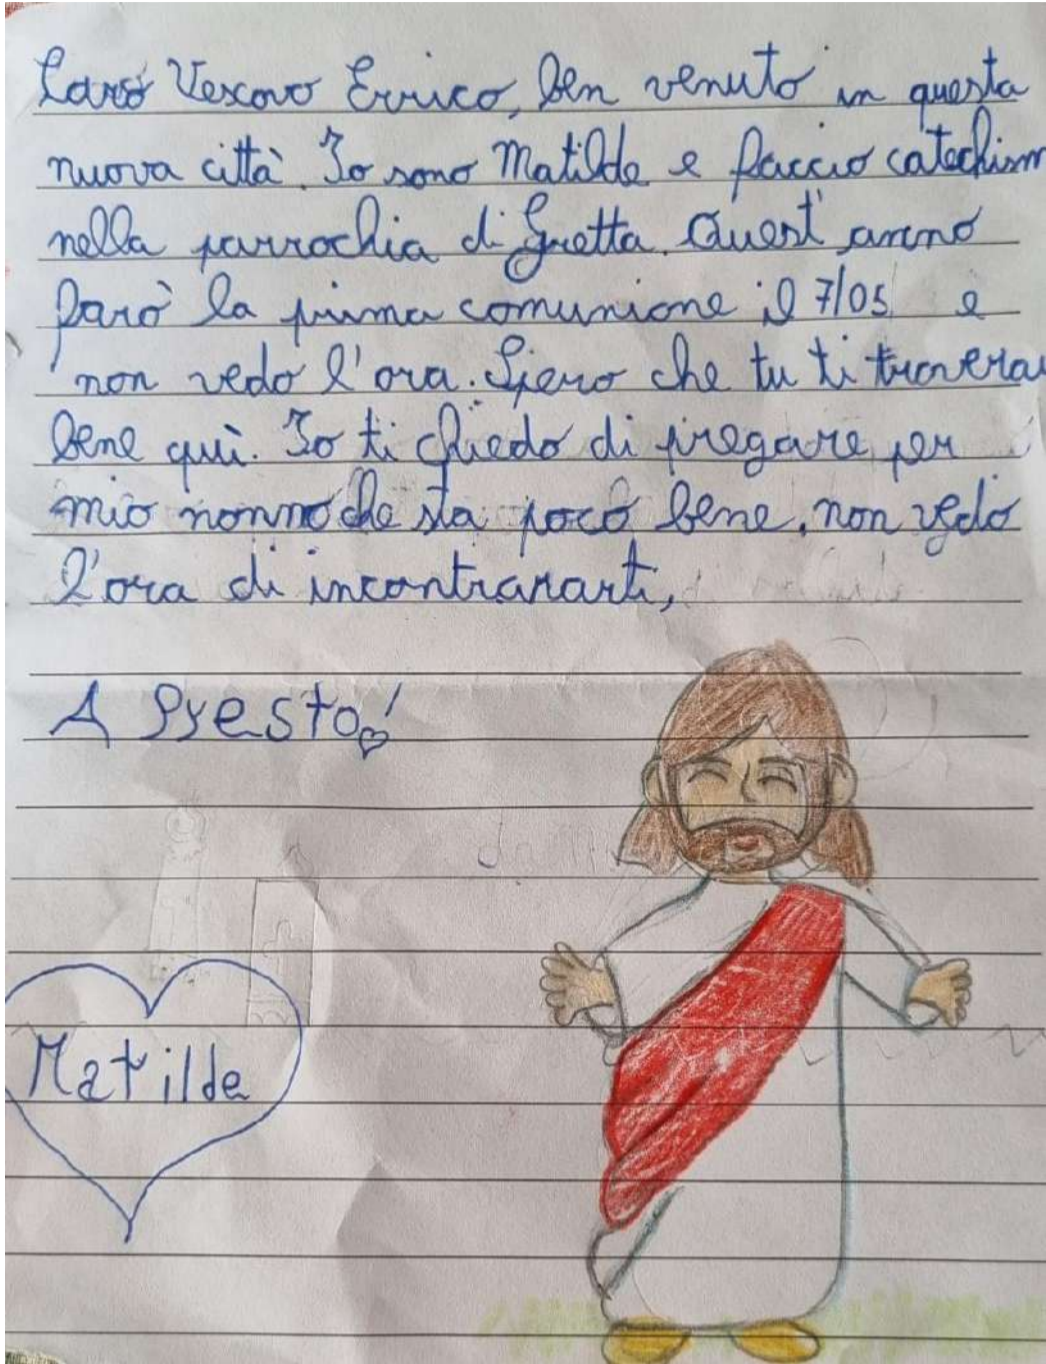 Caro Vescovo Errico, ben venuto in questa
nuova città. Io sono Matilde e faccio catechism
nella parrochia di Gretta. Quest'anno
farò la prima comunione il 7/05 e
non vedo l'ora. Spero che tu ti troverai
bene quì. Io ti chiedo di pregare per
mio nonno che sta poco bene, non vedo
l'ora di incontrararti,
A Presto!
Matilde